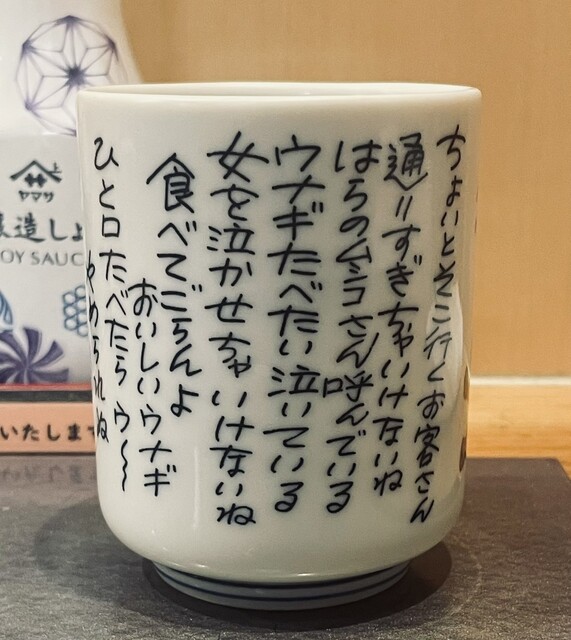 ちょいとそこ行くお客さん
通りすぎちゃいけないね
はらのムシコさん呼んでいる
ウナギたべたい泣いている
女を泣かせちゃいけないね
食べてごらんよ
おいしいウナギ
ひと口たべたらウ〜〜
やめられね
ヤマサ
造しょ
OY SAUC
いたします